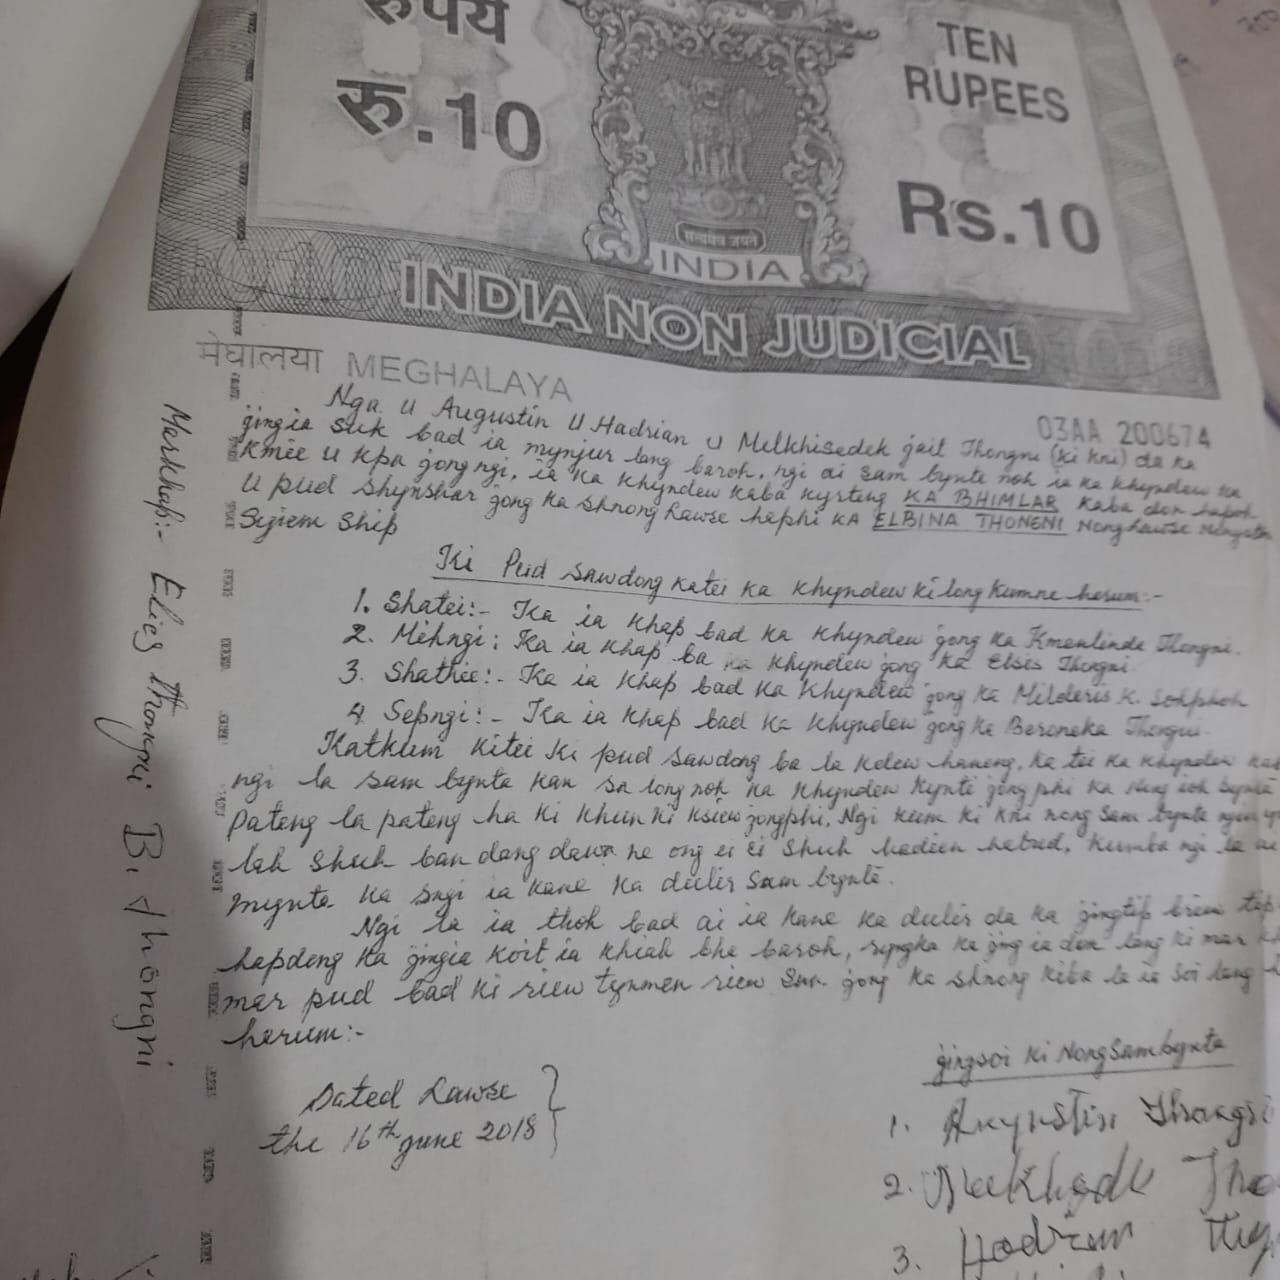 रुपये
रु.10
TEN
RUPEES
Rs.10
सत्यमेव जयते
INDIA
INDIA NON JUDICIAL
मेघालया MEGHALAYA
03AA 200674
Nga u Augustin U Hadrian u Melkhisedek jait Thongni (ki kni) da ka
jingia suk bad ia mynjur lang baroh, ngi ai sam bynta noh ia ka khyndew ka
Kmie u kpa jong ngi, ia ka khyndew kaba kyrteng KA BHIMLAR kaba don hapoh
u pud shynshar jong ka shnong Lawse haphi KA ELBINA THONGNI Nonglawse
Syiem Ship
Ki Pud sawdong katei ka khyndew ki long kumne harum:-
1. Shatei:- Ka ia khap bad ka khyndew jong ka Kmenlinda Thongni.
2. Mihngi: Ka ia khap ba ka khyndew jong ka Elsis Thongni
3. Shathie:- Ka ia khap bad ka khyndew jong ka Milderis K. Sohphoh
4. Sepngi:- Ka ia khap bad ka khyndew jong ka Beroneka Thongni.
Katkum kitei ki pud sawdong ba la kdew haneng, ka tei ka khyndew
ngi la sam bynta kan sa long noh ka khyndew kynti jong phi ka ngin ioh bynta
pateng la pateng ha ki khun ki ksiew jongphi, Ngi kum ki kni nong sam bynta
lah shuh ban dang dawa ne ong ei ei shuh hadien habud, kumba ngi la ai
mynta ka sngi ia kane ka dulir sam bynta.
Ngi la ia thoh bad ai ia kane ka dulir da ka jingtip briew
hapdeng ka jingia koit ia khiah bha baroh, ka jing ia don lang ki mar
mar pud bad ki riew tynmen riew san jong ka shnong kiba la ia soi lang
harum:-
Dated Lawse
the 16th june 2018
jingsoi ki Nongsambynta
1. Augustin Thongni
2.
3. Hadrian
Markhap:- Elies Thongni B. Thongni